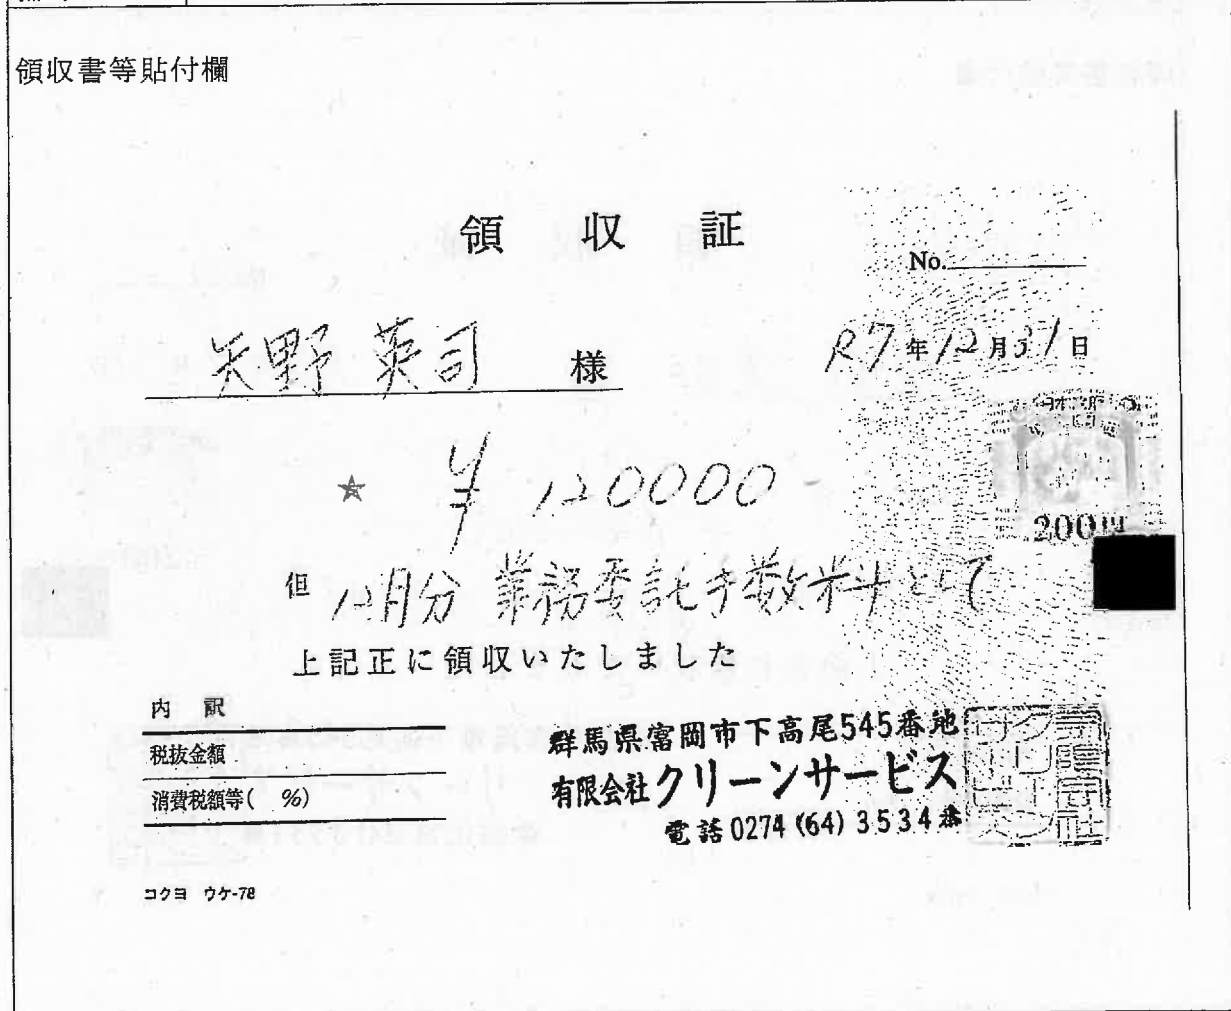 領収書等貼付欄
領 収 証
No.
矢野 英司 様
R7年12月31日
★ ¥120000-
200円
但 12月分 業務委託手数料として
上記正に領収いたしました
内 訳
税抜金額
消費税額等( %)
群馬県富岡市下高尾545番地
有限会社クリーンサービス
電話0274(64)3534番
コクヨ ウケ-78